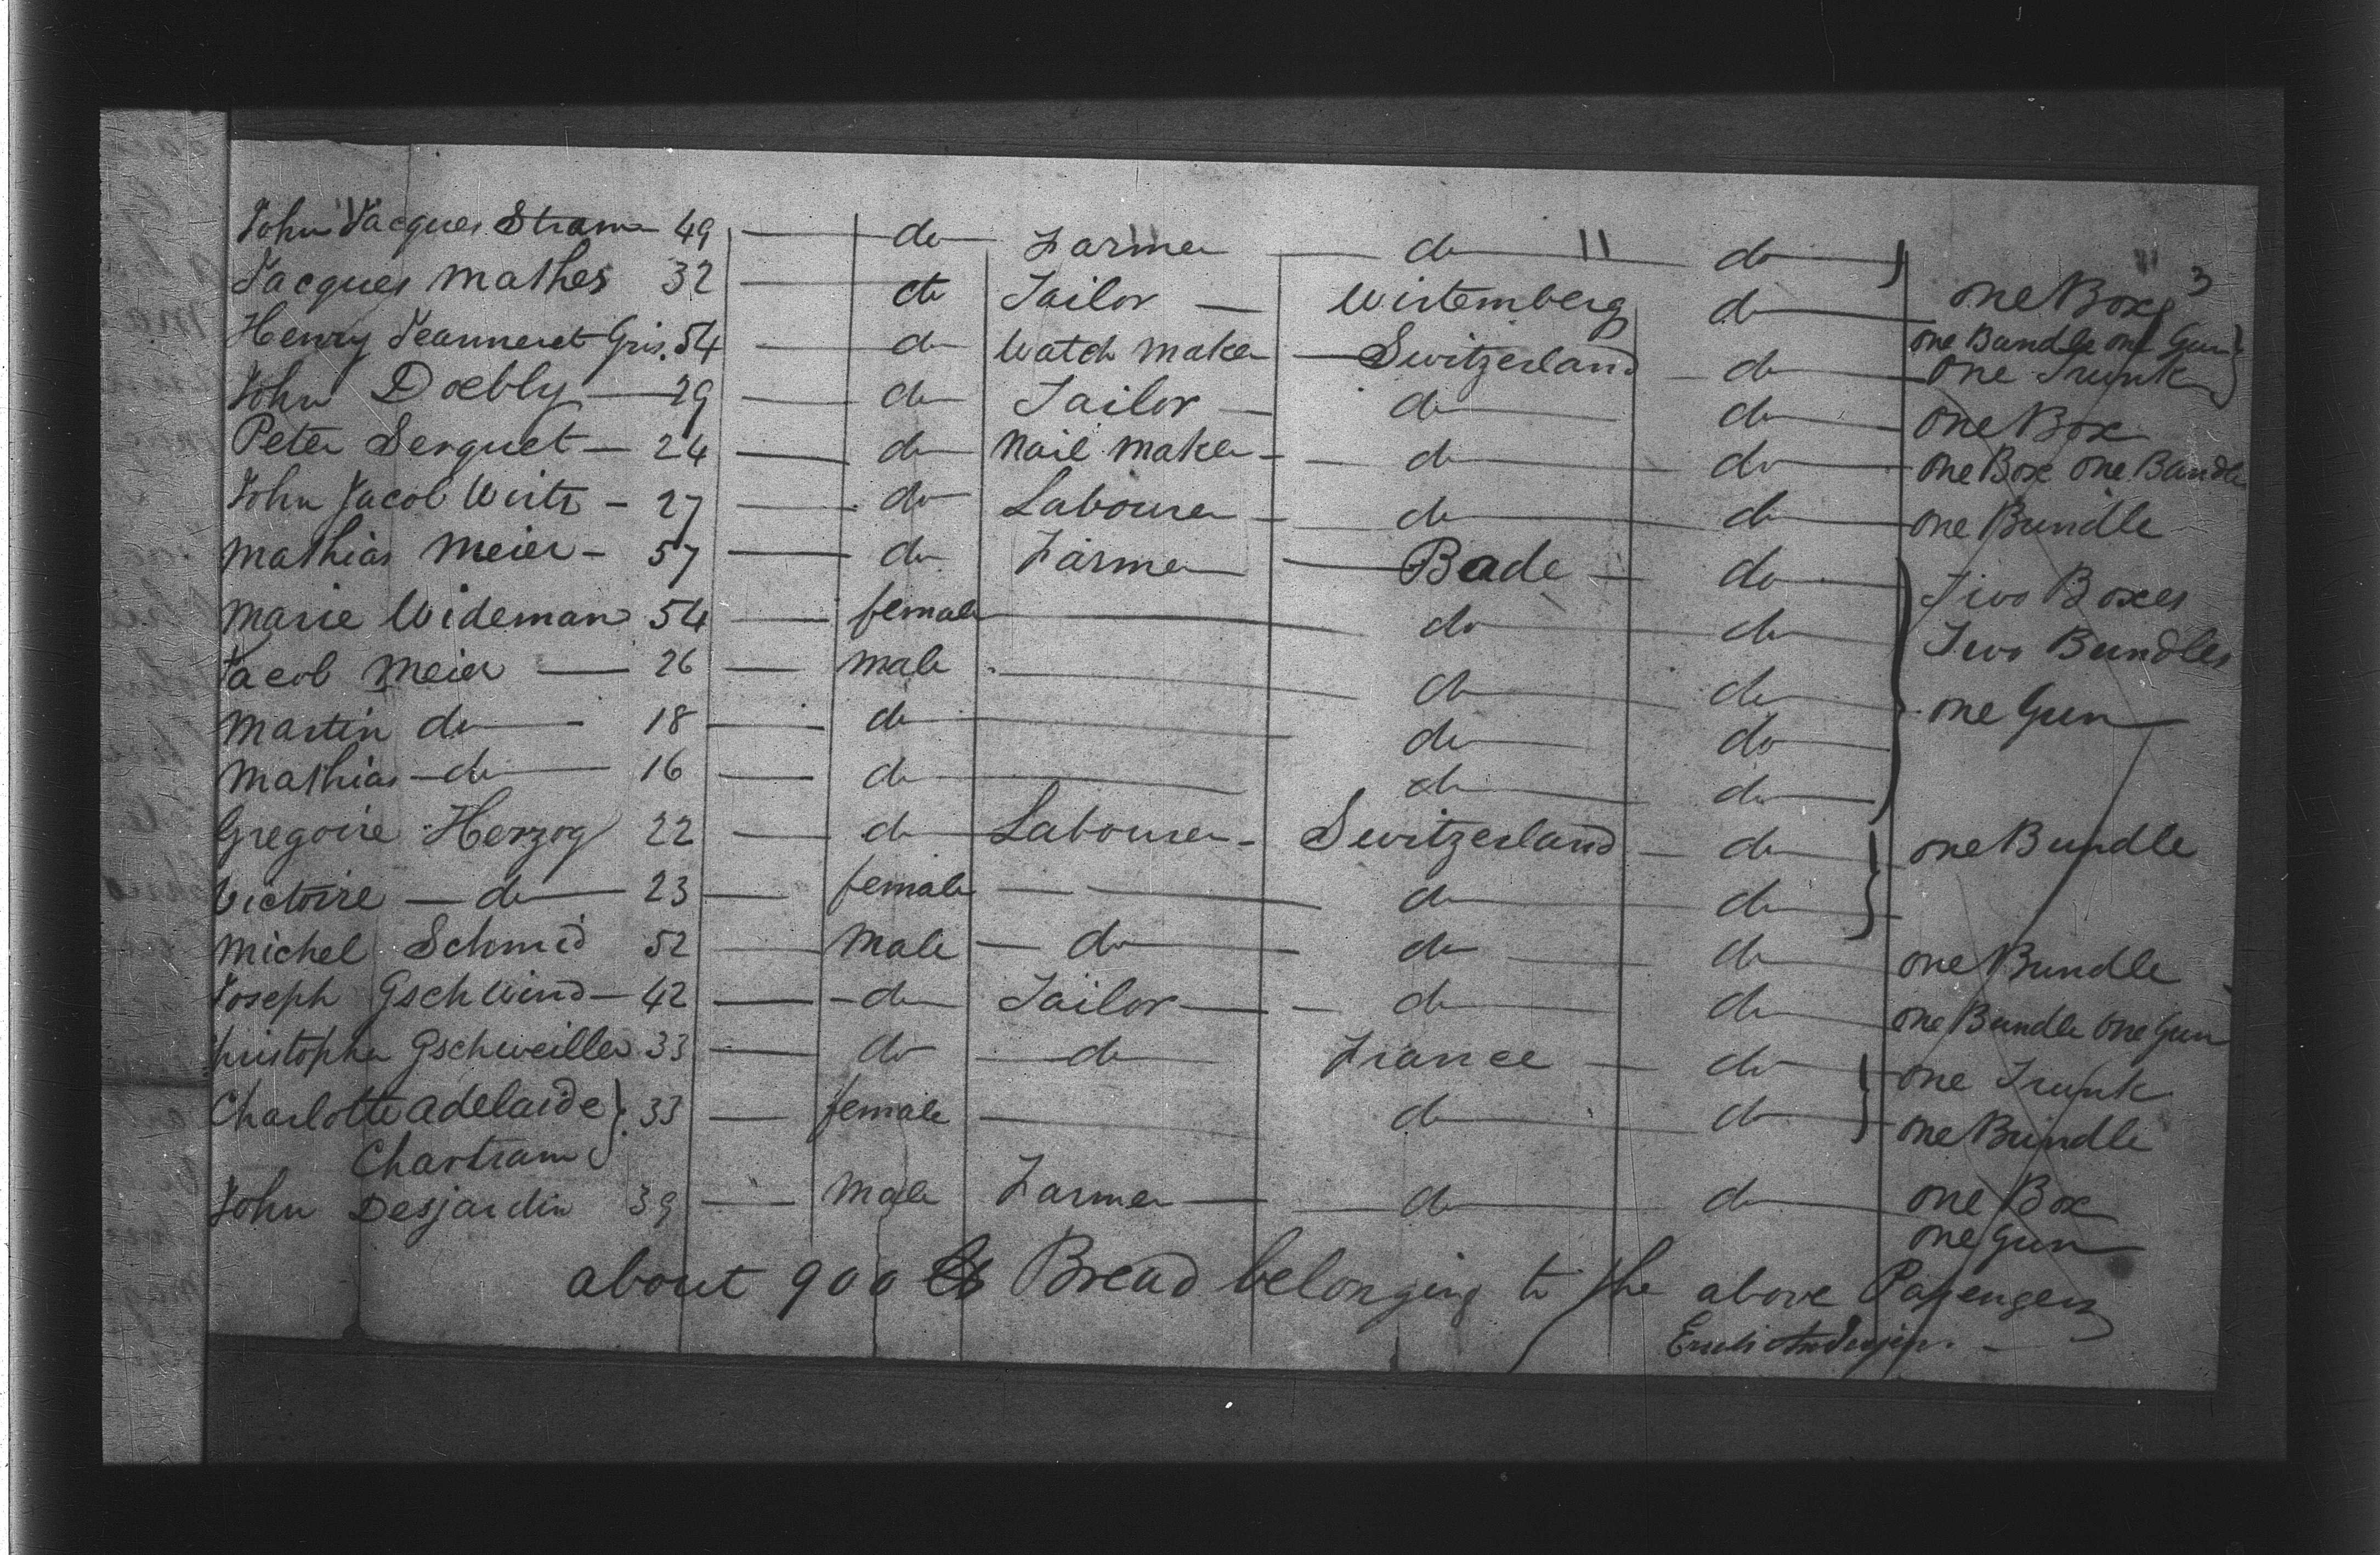 John Jacques Stram 49 — do Farmer — do — " do
Jacques Mathes 32 — do Tailor — Wirtemberg do — one Box 3
Henry Jeanneret Gris. 54 — do Watch maker — Switzerland do — one Bundle one Gun
one Trunk
John Doebly — 29 — do Tailor — do — do — one Box
Peter Serquet — 24 — do Nail maker — do — do — one Box one Bundle
John Jacob Wirtz — 27 — do Labourer — do — do — one Bundle
Mathias Meier — 57 — do Farmer — Bade — do — Two Boxes
Marie Wideman 54 — female — do do Two Bundles
Jacob Meier — 26 — male — do — do one Gun
Martin do — 18 — do — do — do
Mathias — do — 16 — do — do — do
Gregoire Herzog 22 — do Labourer — Switzerland — do — one Bundle
Victoire — do — 23 — female — do — do
Michel Schmid 52 — male — do — do — do one Bundle
Joseph Gschwind — 42 — do — Tailor — do — do one Bundle one Gun
Christopher Gschweiller 33 — do — do — France — do one Trunk
Charlotte Adelaide } 33 — female — do — do one Bundle
Chartram
John Desjardin 39 — male Farmer — do — do one Box
one Gun
about 900 lb Bread belonging to the above Passengers